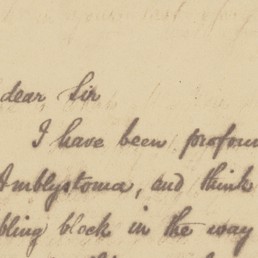 dear, Sir
I have been profoun
Amblystoma, and think
bling block in the way